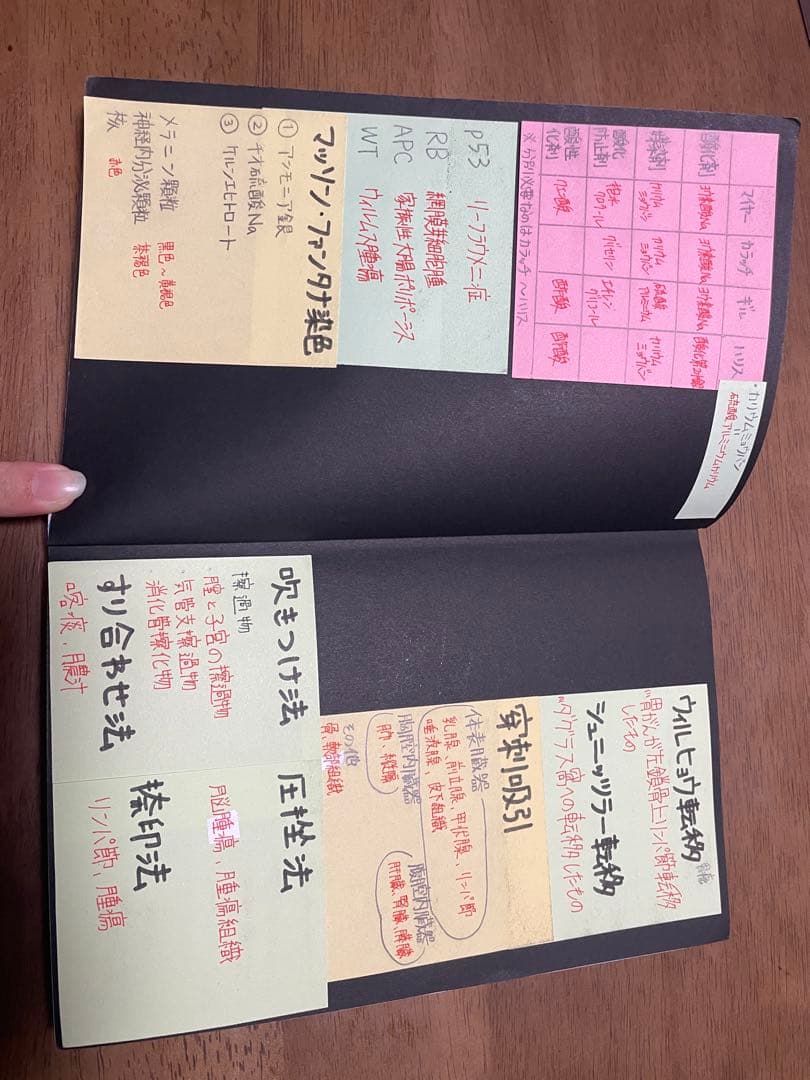 マイヤー カラッチ ギル ハリス
酸化剤 ヨウ素酸Na ヨウ素酸Na ヨウ素酸Na 酸化第二水銀
媒染剤 カリウムミョウバン カリウムミョウバン 硫酸アルミニウム カリウムミョウバン
酸化防止剤 抱水クロラール グリセリン エチレングリコール
酸性化剤 クエン酸 酢酸 酢酸
※分別必要なのはカラッチ〜ハリス
・カリウムミョウバン
硫酸アルミニウムカリウム
p53 リーフラウメニ症
RB 網膜芽細胞腫
APC 家族性大腸ポリポーシス
WT ウィルムス腫瘍
マッソン・ファンタナ染色
① アンモニア銀
② チオ硫酸Na
③ ケルンエヒトロート
メラニン顆粒 黒色〜茶褐色
神経内分泌顆粒 茶褐色
核 赤色
ウィルヒョウ転移
胃がんが左鎖骨上リンパ節転移
したもの
シュニッツラー転移
ダグラス窩への転移したもの
穿刺吸引
体表臓器
乳腺、前立腺、甲状腺、リンパ節
唾液腺、皮下組織
胸腔内臓器
肺、縦隔
腹腔内臓器
肝臓、腎臓、膵臓
その他
骨、軟部組織
吹きつけ法
擦過物
・腟と子宮の擦過物
・気管支擦過物
消化管擦化物
すり合わせ法
喀痰、膿汁
圧挫法
脳腫瘍、腫瘍組織
捺印法
リンパ節、腫瘍